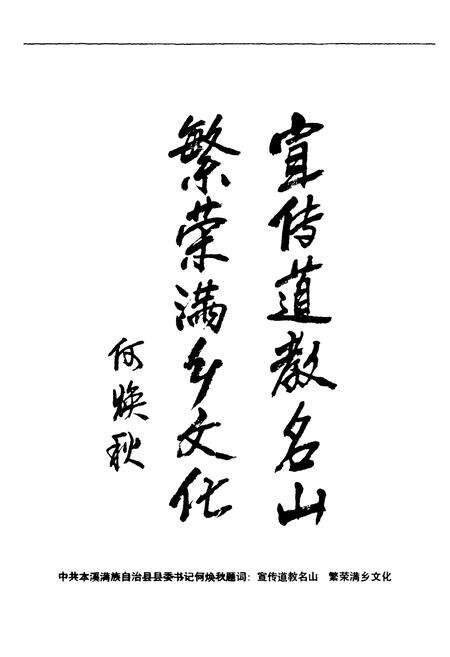 宣传道教名山
繁荣满乡文化
何焕秋
中共本溪满族自治县县委书记何焕秋题词：宣传道教名山　繁荣满乡文化